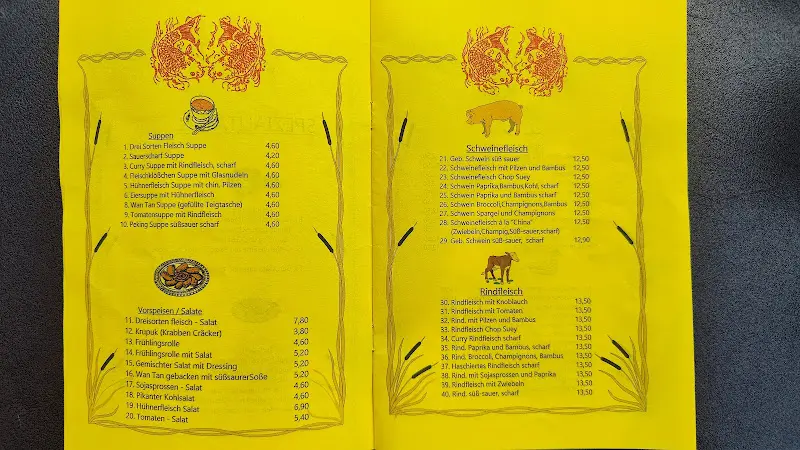 Suppen
1. Drei Sorten Fleisch Suppe 4,60
2. Sauerscharf Suppe 4,20
3. Curry Suppe mit Rindfleisch, scharf 4,60
4. Fleischklößchen Suppe mit Glasnudeln 4,60
5. Hühnerfleisch Suppe mit chin. Pilzen 4,60
6. Eiersuppe mit Hühnerfleisch 4,60
8. Wan Tan Suppe (gefüllte Teigtasche) 4,60
9. Tomatensuppe mit Rindfleisch 4,60
10. Peking Suppe süßsauer scharf 4,60
Vorspeisen / Salate
11. Dreisorten fleisch - Salat 7,80
12. Krupuk (Krabben Cräcker) 3,80
13. Frühlingsrolle 4,60
14. Frühlingsrolle mit Salat 5,20
15. Gemischter Salat mit Dressing 5,20
16. Wan Tan gebacken mit süßsaurerSoße 5,20
17. Sojasprossen - Salat 4,60
18. Pikanter Kohlsalat 4,60
19. Hühnerfleisch Salat 6,90
20. Tomaten - Salat 5,40
Schweinefleisch
21. Geb. Schwein süß sauer 12,50
22. Schweinefleisch mit Pilzen und Bambus 12,50
23. Schweinefleisch Chop Suey 12,50
24. Schwein Paprika,Bambus,Kohl, scharf 12,50
25. Schwein Paprika und Bambus scharf 12,50
26. Schwein Broccoli,Champignons,Bambus 12,50
27. Schwein Spargel und Champignons 12,50
28. Schweinefleisch à la "China" 12,50
(Zwiebeln,Champig,Süß-sauer,scharf)
29. Geb. Schwein süß-sauer, scharf 12,90
Rindfleisch
30. Rindfleisch mit Knoblauch 13,50
31. Rindfleisch mit Tomaten 13,50
32. Rind. mit Pilzen und Bambus 13,50
33. Rindfleisch Chop Suey 13,50
34. Curry Rindfleisch scharf 13,50
35. Rind. Paprika und Bambus, scharf 13,50
36. Rind. Broccoli, Champignons, Bambus 13,50
37. Haschiertes Rindfleisch scharf 13,50
38. Rind. mit Sojasprossen und Paprika 13,50
39. Rindfleisch mit Zwiebeln 13,50
40. Rind. süß-sauer, scharf 13,50